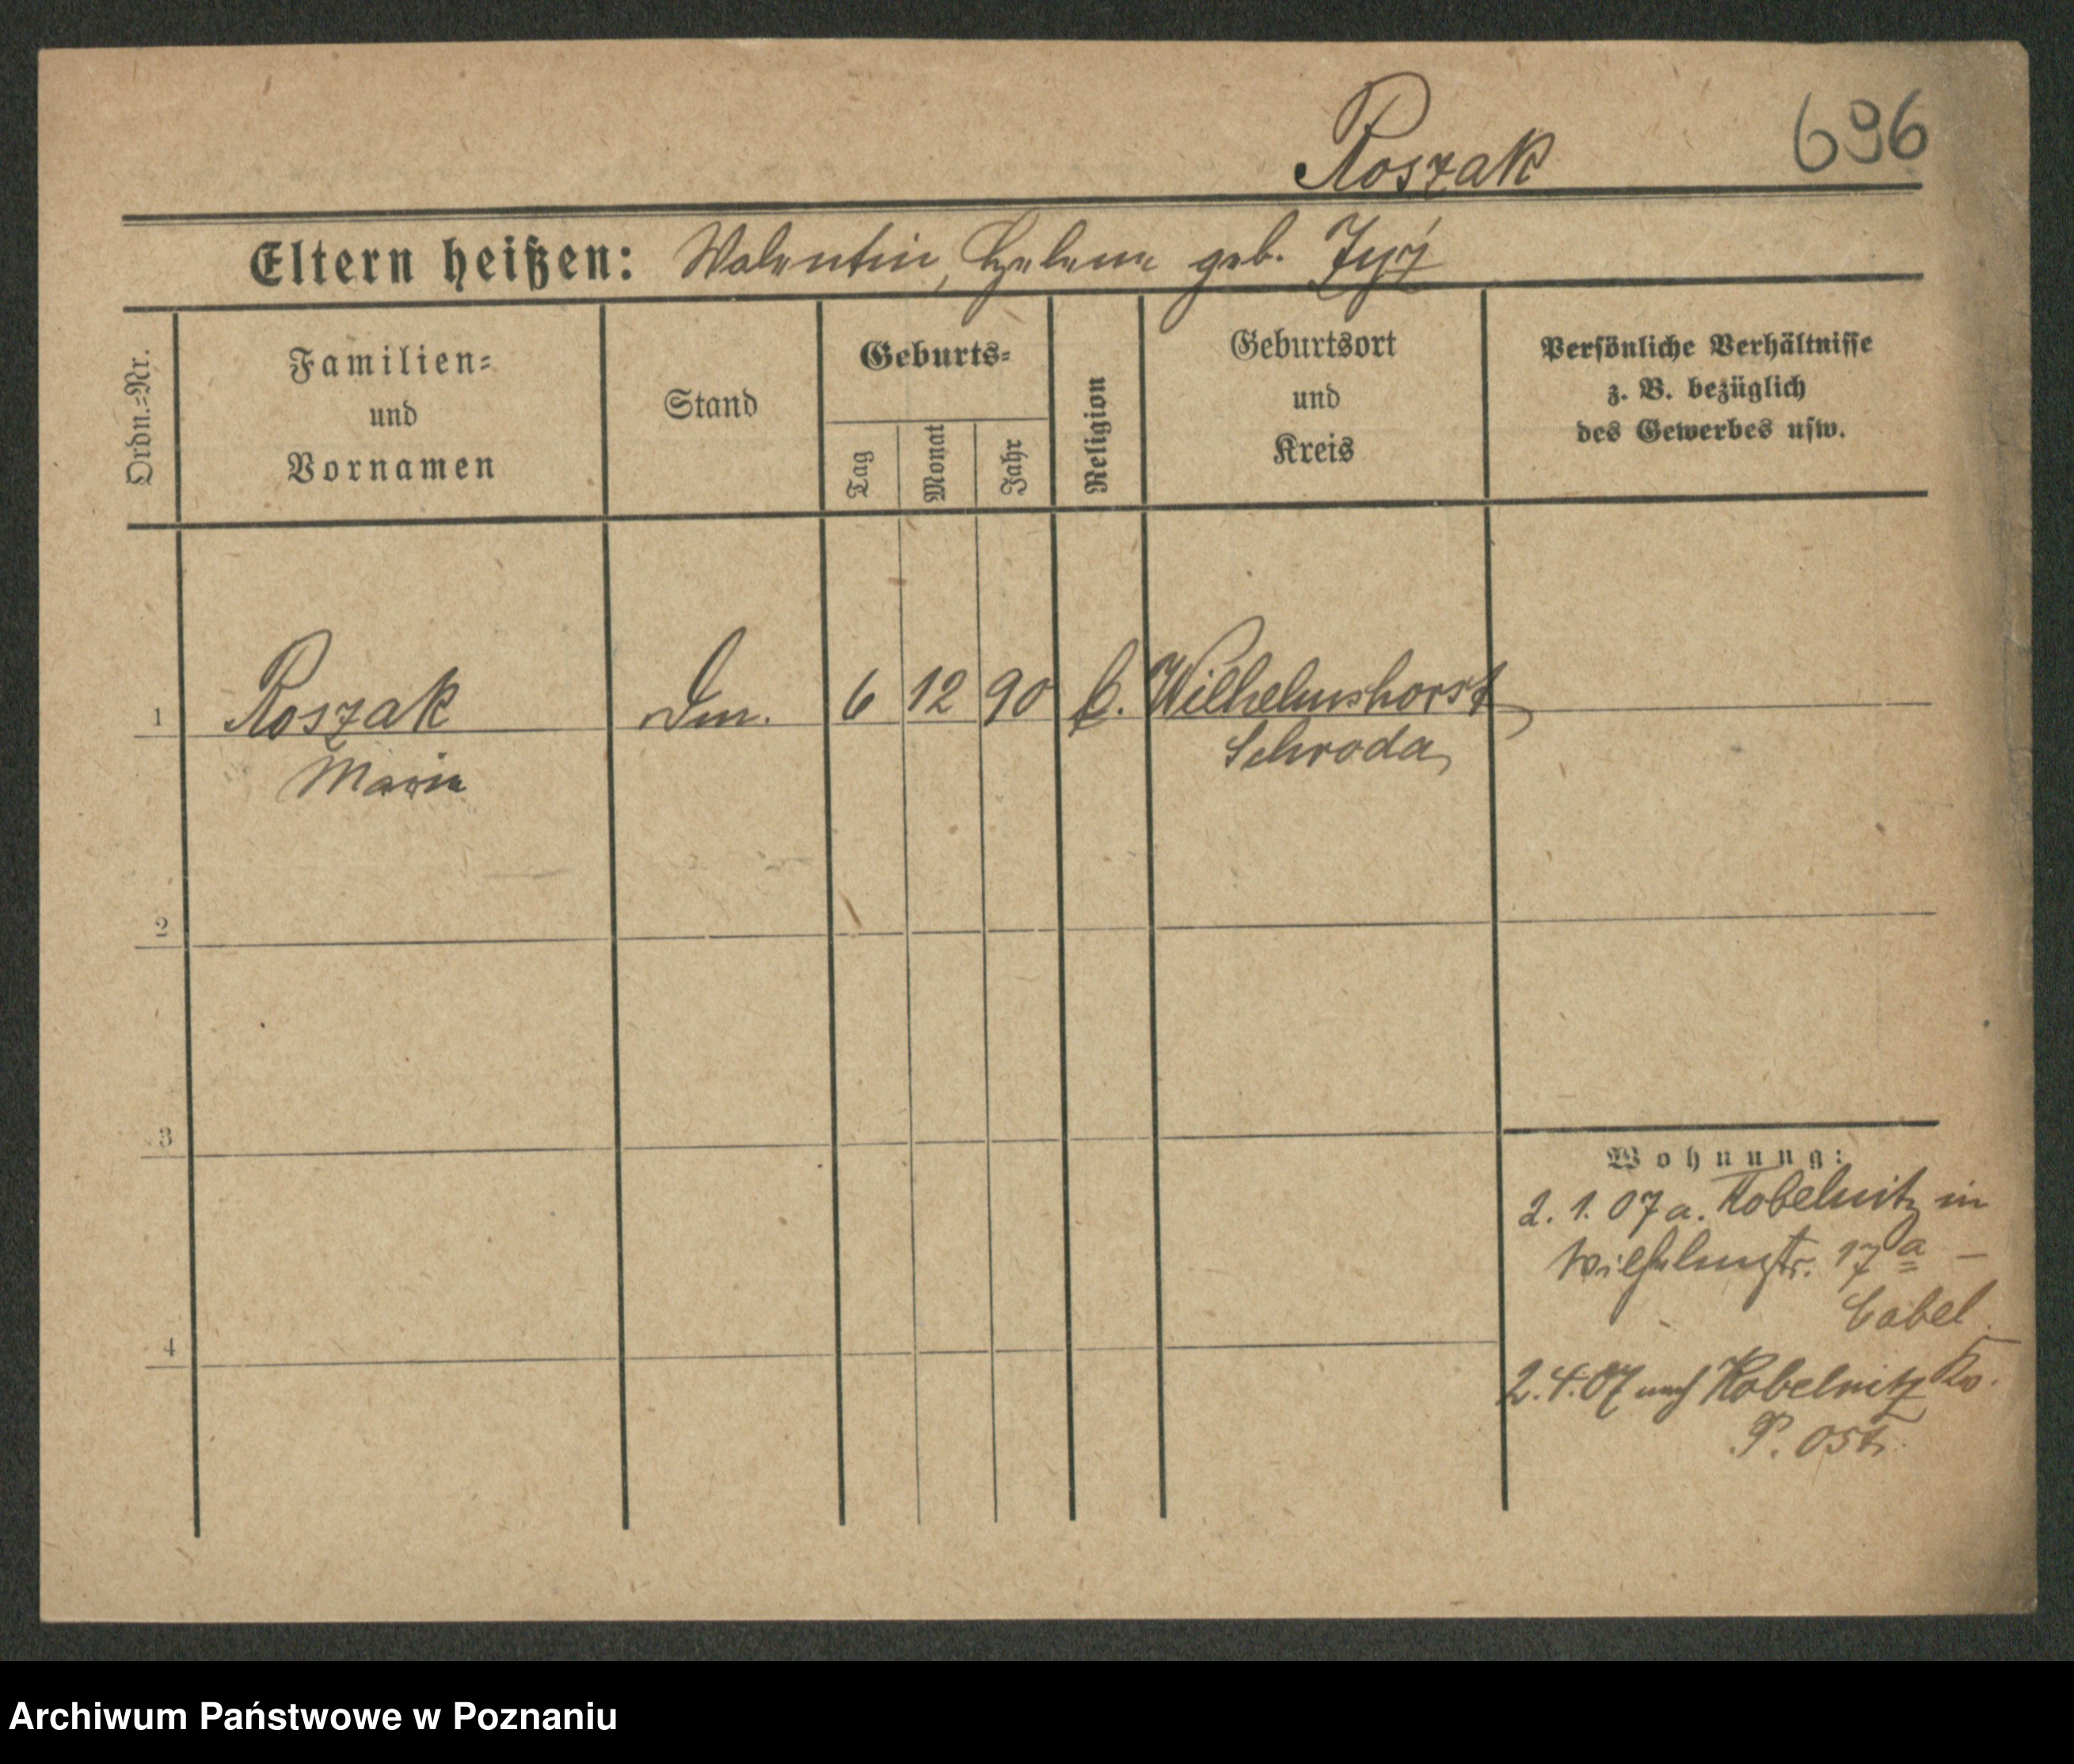 Roszak
696
Eltern heißen: Valentin, Helene geb.
Ordn.=Nr.
Familien=
und
Vornamen
Stand
Geburts=
Tag
Monat
Jahr
Religion
Geburtsort
und
Kreis
Persönliche Verhältnisse
z. B. bezüglich
des Gewerbes usw.
1 Roszak Dm. 6 12 90 C. Wilhelmshorst
Marie Schroda
2
3
4
Wohnung:
2. 1. 07 a. Kobelnitz in
Wilhelmstr. 17a –
Cabel
2.4.07 nach Kobelnitz Kr.
P. Ost.
Archiwum Państwowe w Poznaniu